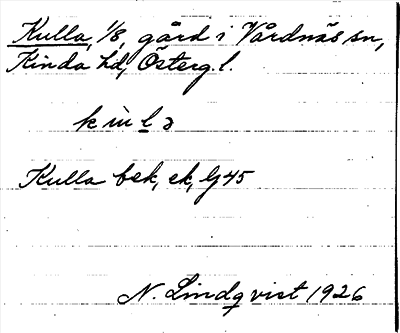 Kulla, 1/8, gård i Vårdnäs sn,
Kinda hd, Österg.l.
Kulla bek, ek, Gj 45
N. Lindqvist 1926